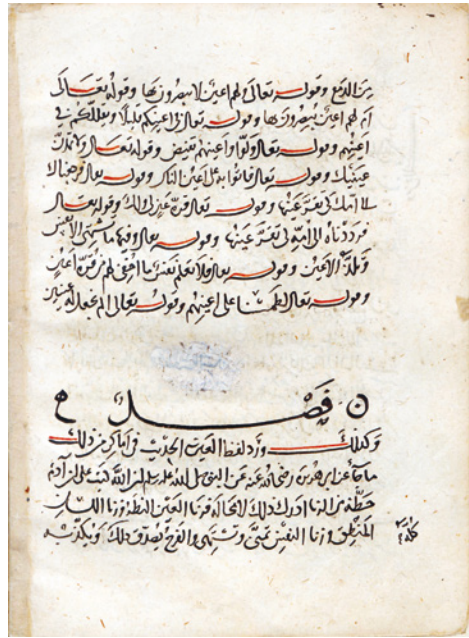 من الدمع وقوله تعالى ولهم اعين لا يبصرون بها وقوله تعالى
ام لهم اعين يبصرون بها وقوله تعالى في اعينكم قليلا ويقللكم في
اعينهم وقوله تعالى تولوا واعينهم تفيض وقوله تعالى ولا تمدن
عينيك وقوله تعالى فاتوا به على اعين الناس وقوله تعالى فرجعناك
الى امك كي تقر عينها وقوله تعالى قرة عين لي ولك وقوله تعالى
فرددناه الى امه كي تقر عينها وقوله تعالى وفيها ما تشتهي الانفس
وتلذ الاعين وقوله تعالى فلا تعلم نفس ما اخفي لهم من قرة اعين
وقوله تعالى لطمسنا على اعينهم وقوله تعالى الم نجعل له عينين
فصل
وكذلك ورد لفظ العين الحديث في اماكن من ذلك
ما جا عن ابي هريرة رضي الله عنه عن النبي صلى الله عليه وسلم ان الله كتب على ابن آدم
حظه من الزنا ادرك ذلك لا محالة فزنا العين النظر وزنا اللسان
المنطق وزنا النفس تمنى وتشتهي والفرج يصدق ذلك ويكذبه